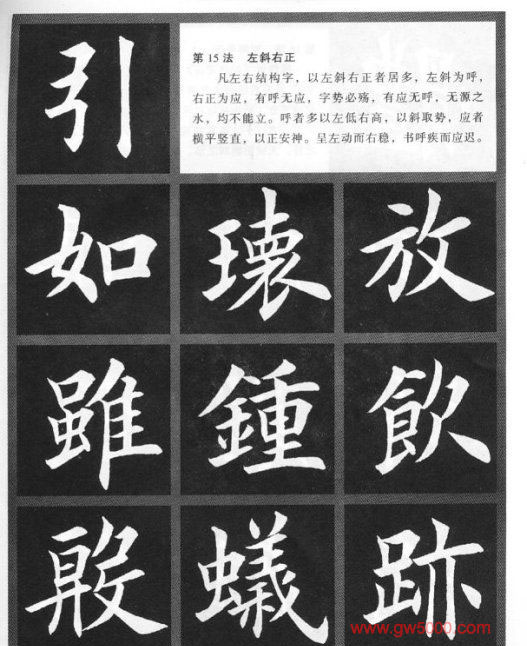 引
第 15 法 左斜右正
凡左右结构字，以左斜右正者居多，左斜为呼，
右正为应，有呼无应，字势必殇，有应无呼，无源之
水，均不能立。呼者多以左低右高，以斜取势，应者
横平竖直，以正安神。呈左动而右稳，书呼疾而应迟。
如 瓌 放
雖 鍾 飲
蟻 跡
www.gw5000.com